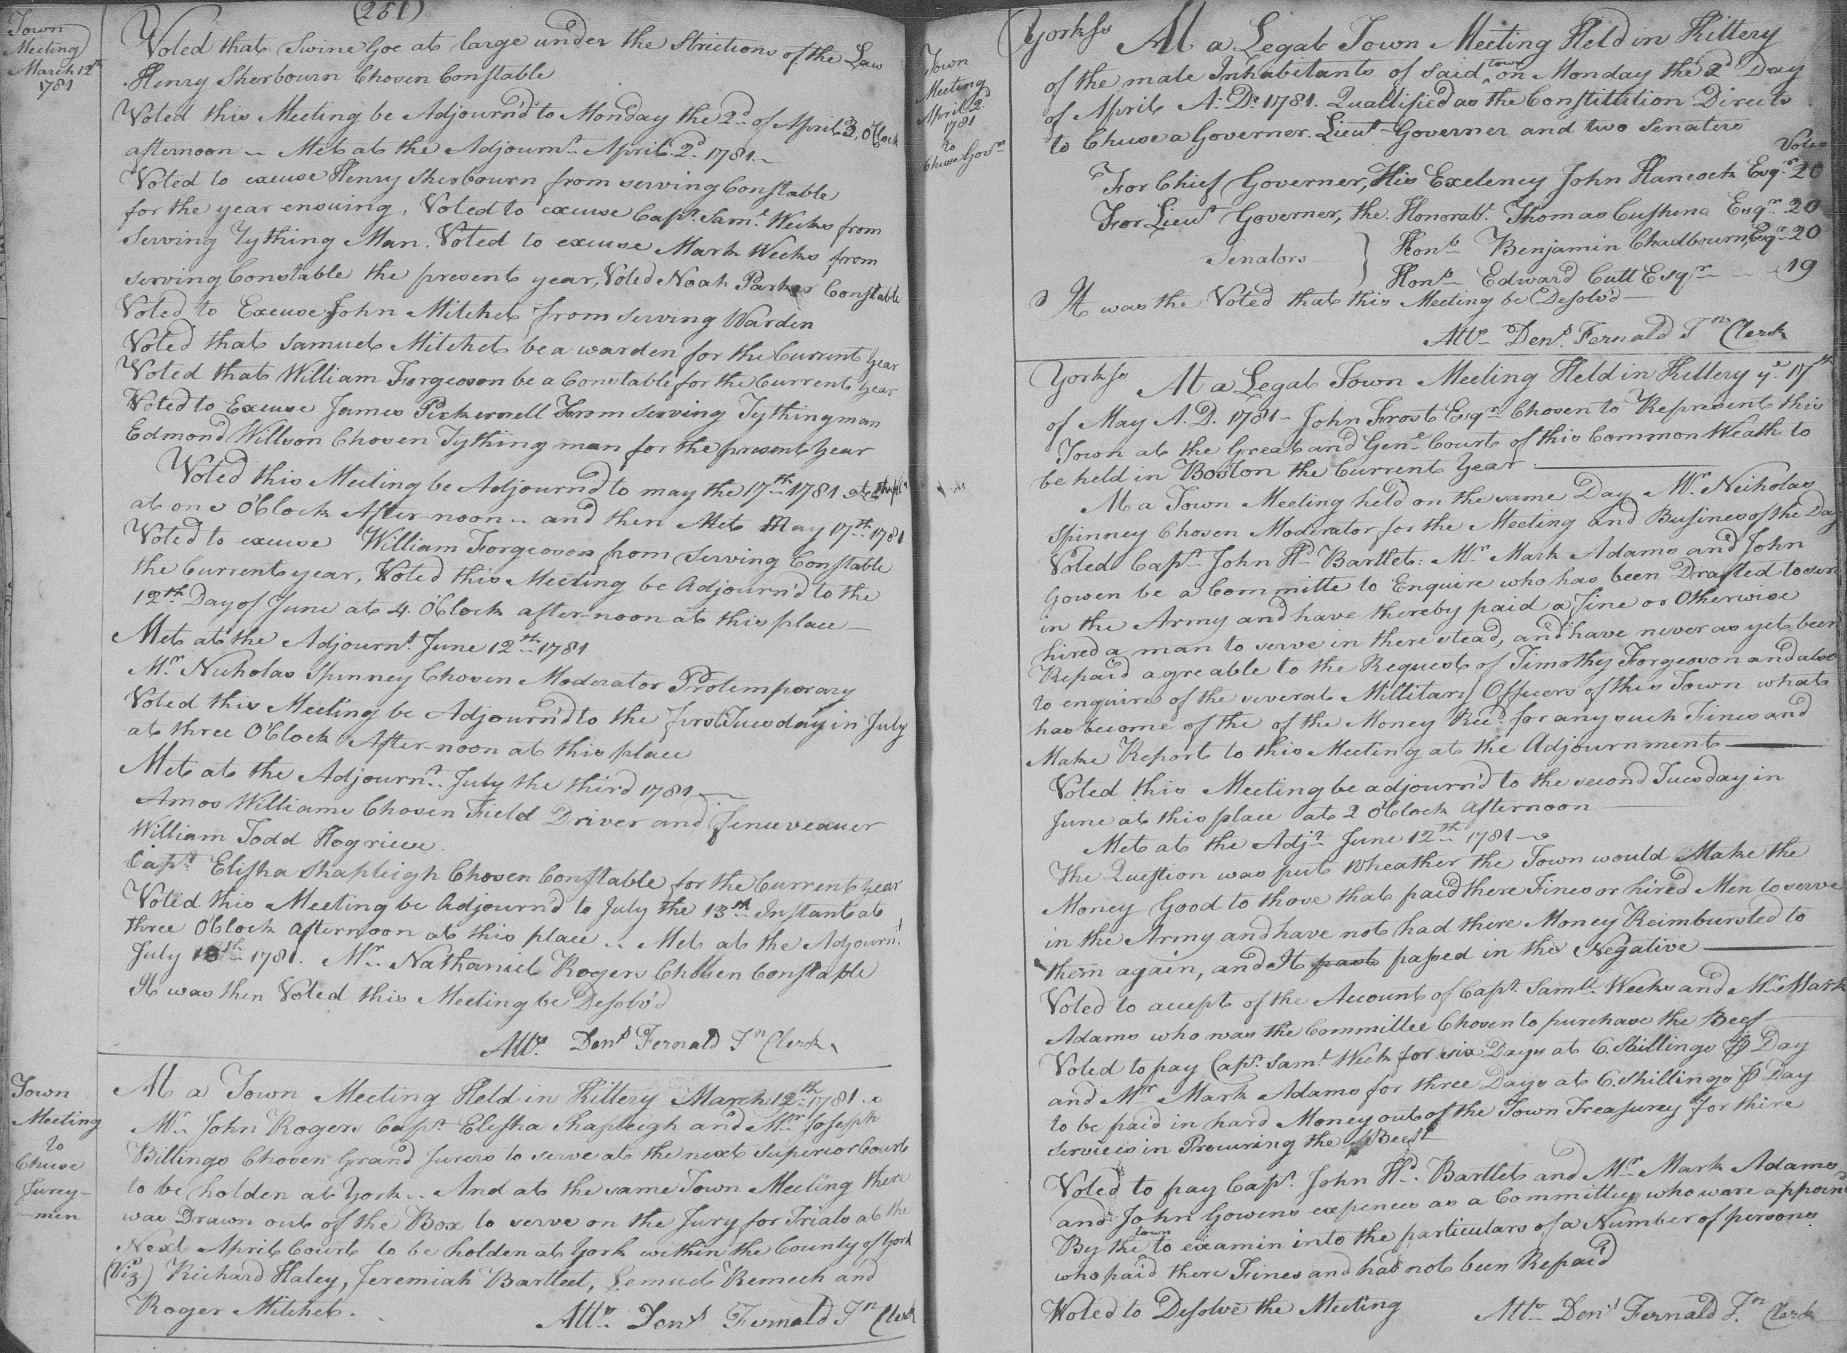 (251)
Town
Meeting
March 12th
1781
Voted that Swine Goe at large under the Strictions of the Law
Henry Sherbourn Chosen Constable
Voted this Meeting be Adjourn'd to Monday the 2d of April 3, O'Clock
afternoon - Met at the Adjournt April 2d 1781 -
Voted to excuse Henry Sherbourn from serving Constable
for the year ensuing, Voted to excuse Capt Saml Weeks from
Serving Tything Man. Voted to excuse Mark Weeks from
serving Constable the present year, Voted Noah Parker Constable
Voted to Excuse John Mitchel from serving Warden
Voted that Samuel Mitchel be a warden for the Current year
Voted that William Forgeoson be a Constable for the Current year
Voted to Excuse James Pickernell From serving Tythingman
Edmond Willson Chosen Tything man for the present year
Voted this Meeting be Adjourn'd to may the 17th 1781
at one O'Clock After-noon - and then Met May 17th 1781
Voted to excuse William Forgeoson from serving Constable
the Current year, Voted this Meeting be Adjourn'd to the
12th Day of June at 4 O'Clock after-noon at this place -
Met at the Adjournt June 12th 1781
Mr Nicholas Spinney Chosen Moderator Protemporary
Voted this Meeting be Adjourn'd to the first Tuesday in July
at three O'Clock After-noon at this place
Met at the Adjournt July the third 1781 -
Amos Williams Chosen Field Driver and fenceveauer
William Todd Hogrieve
Capt Elisha Shapleigh Chosen Constable for the Current year
Voted this Meeting be Adjourn'd to July the 13th Instant at
three O'Clock afternoon at this place - Met at the Adjournt
July 13th 1781. Mr Nathaniel Rogers Chosen Constable
It was then Voted this Meeting be Desolv'd
Attr Denl Fernald Tn Clerk
Town
Meeting
to
Chuse
Jurey-
-men
At a Town Meeting Held in Kittery March 12th 1781
Mr John Rogers Capt Elisha Shapleigh and Mr Joseph
Billings Chosen Grand Jurers to serve at the next Superior Court
to be holden at York - And at the same Town Meeting there
was Drawn out of the Box to serve on the Jury for Trials at the
Next April Court to be holden at York within the County of York
(Viz) Richard Haley, Jeremiah Bartlet, Lemuel Remech and
Roger Mitchel.
Attr Denl Fernald Tn Clerk
Town
Meeting
April 2d
1781
to
Chuse Govr
Yorkss At a Legal Town Meeting Held in Kittery
of the male Inhabetants of said town on Monday the 2d Day
of April A: D: 1781. Quallified as the Constitution Directs
to Chuse a Governer. Lieut Governer and two Senaters
Votes
For Chief Governer, His Exelency John Hancock Esqr 20
For Lieut Governer, the Honorabl Thomas Cushing Esqr 20
Senators } Honb Benjamin Chadbourn, Esqr 20
Honb Edward Cutt Esqr 19
It was the Voted that this Meeting be Desolv'd
Attr Denl Fernald Tn Clerk
Yorkss At a Legal Town Meeting Held in Kittery ye 17th
of May A. D. 1781 - John Frost Esqr Chosen to Represent this
Town at the Great and Genl Court of this Common Weath to
be held in Boston the Current Year
At a Town Meeting held on the same Day Mr Neicholas
Spinney Chosen Moderator for the Meeting and Busines of the Day
Voted Capt John Hd Bartlet: Mr Mark Adams and John
Gowen be a Committe to Enquire who has been Drafted to serve
in the Army and have thereby paid a fine or Otherwise
hired a man to serve in there stead, and have never as yet been
Repaid agreable to the Request of Timothy Forgeoson and also
to enquire of the several Millitary Officers of this Town what
has become of the of the Money Reed for any such Fines and
Make Report to this Meeting at the Adjournment
Voted this Meeting be adjourn'd to the second Tuesday in
June at this place at 2 O'Clock afternoon
Met at the Adjt June 12th 1781
The Question was put Wheather the Town would Make the
Money Good to those that paid there Fines or hired Men to serve
in the Army and have not had there Money Reimbursted to
them again, and It past passed in the Negative
Voted to accept of the Account of Capt Samll Weeks and Mr Mark
Adams who was the Committee Chosen to purchase the Beef
Voted to pay Capt Saml Week for six Days at 6. Shillings ⅌ Day
and Mr Mark Adams for three Days at 6. Shillings ⅌ Day
to be paid in hard Money out of the Town Treasurey for there
services in Procuring the Beef
Voted to pay Capt John Hd Bartlet and Mr Mark Adams
and John Gowens expences as a Committey who were appoind
By the town to examin into the particulars of a Number of persons
who paid there Fines and had not been Repaid
Voted to Desolve the Meeting Attr Denl Fernald Tn Clerk